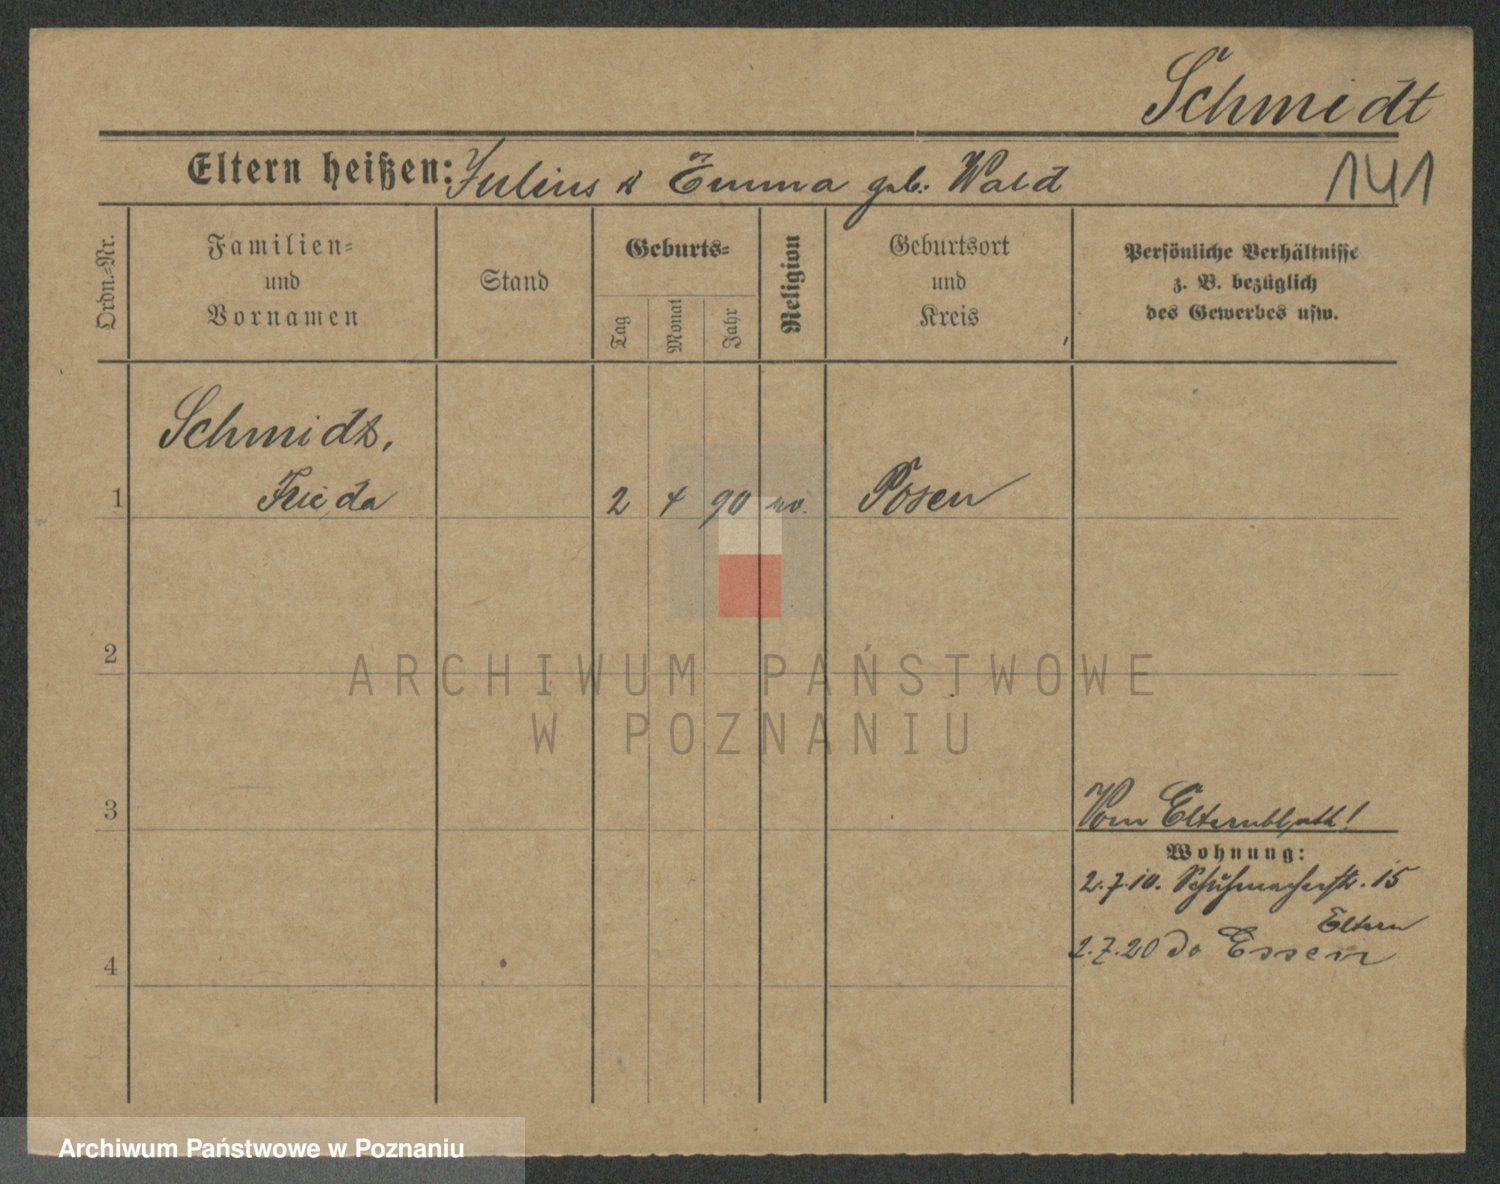 Schmidt
Eltern heißen: Julius & Emma geb. Wald
141
Ordn.-Nr.
Familien-
und
Vornamen
Stand
Geburts-
Tag
Monat
Jahr
Religion
Geburtsort
und
Kreis
Persönliche Verhältnisse
z. B. bezüglich
des Gewerbes usw.
Schmidt,
1 Frieda 2 4 90 ev. Posen
2
3
Vom Elternblatt!
Wohnung:
2.7.10. Schuhmacherstr. 15
Eltern
2.7.20 do Essen
4
ARCHIWUM PAŃSTWOWE
W POZNANIU
Archiwum Państwowe w Poznaniu